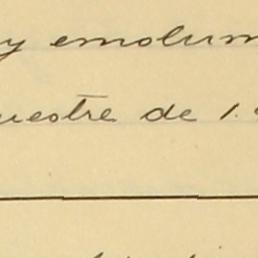 y emolum
uestre de 1.